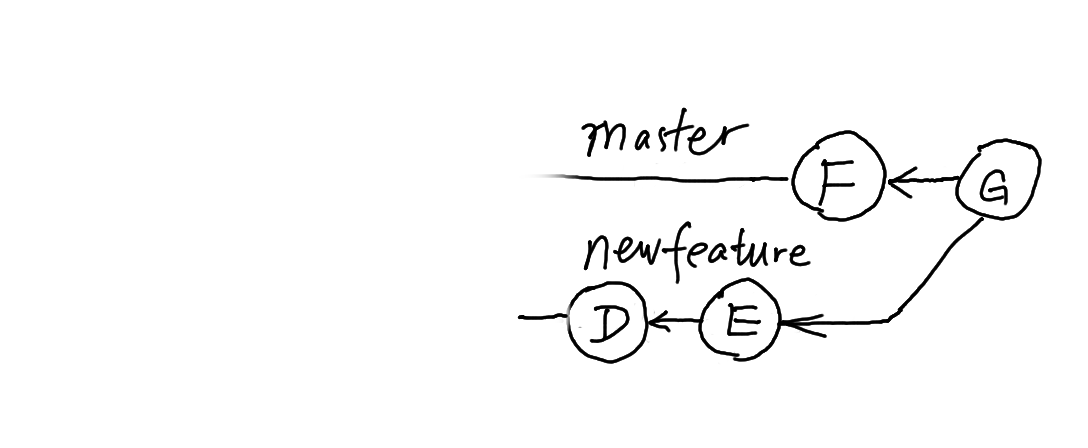 master
F G
newfeature
D E